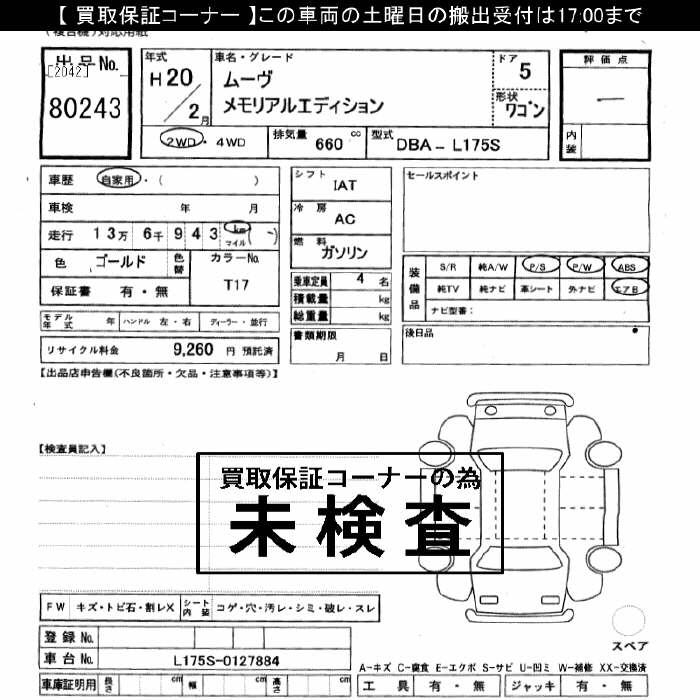 【 買取保証コーナー 】この車両の土曜日の搬出受付は17:00まで
(複合機)対応用紙
出品No.
[2042]
80243
年式
H20/2月
車名・グレード
ムーヴ
メモリアルエディション
ドア
5
形状
ワゴン
2WD・4WD
排気量 660 cc
型式 DBA－L175S
評価点
－
内装
車歴 自家用・( )
車検 年 月
走行 13万 6千 943 km マイル ( )
色 ゴールド 色替 カラーNo.
T17
保証書 有・無
モデル年式 年 ハンドル 左・右 ディーラー・並行
リサイクル料金 9,260 円 預託済
シフト IAT
冷房 AC
燃料 ガソリン
乗車定員 4 名
積載量 kg
総重量 kg
書類期限
月 日
セールスポイント
装備品
S/R 純A/W P/S P/W ABS
純TV 純ナビ 革シート 外ナビ エアB
ナビ型番：
後日品
【出品店申告欄(不良箇所・欠品・注意事項等)】
【検査員記入】
買取保証コーナーの為
未検査
FW キズ・トビ石・割レX シート内装 コゲ・穴・汚レ・シミ・破レ・スレ
登録No.
車台No. L175S-0127884
車庫証明用 長さ cm 幅 cm 高さ cm
スペア
A-キズ C-腐食 E-エクボ S-サビ U-凹ミ W-補修 XX-交換済
工具 有・無 ジャッキ 有・無